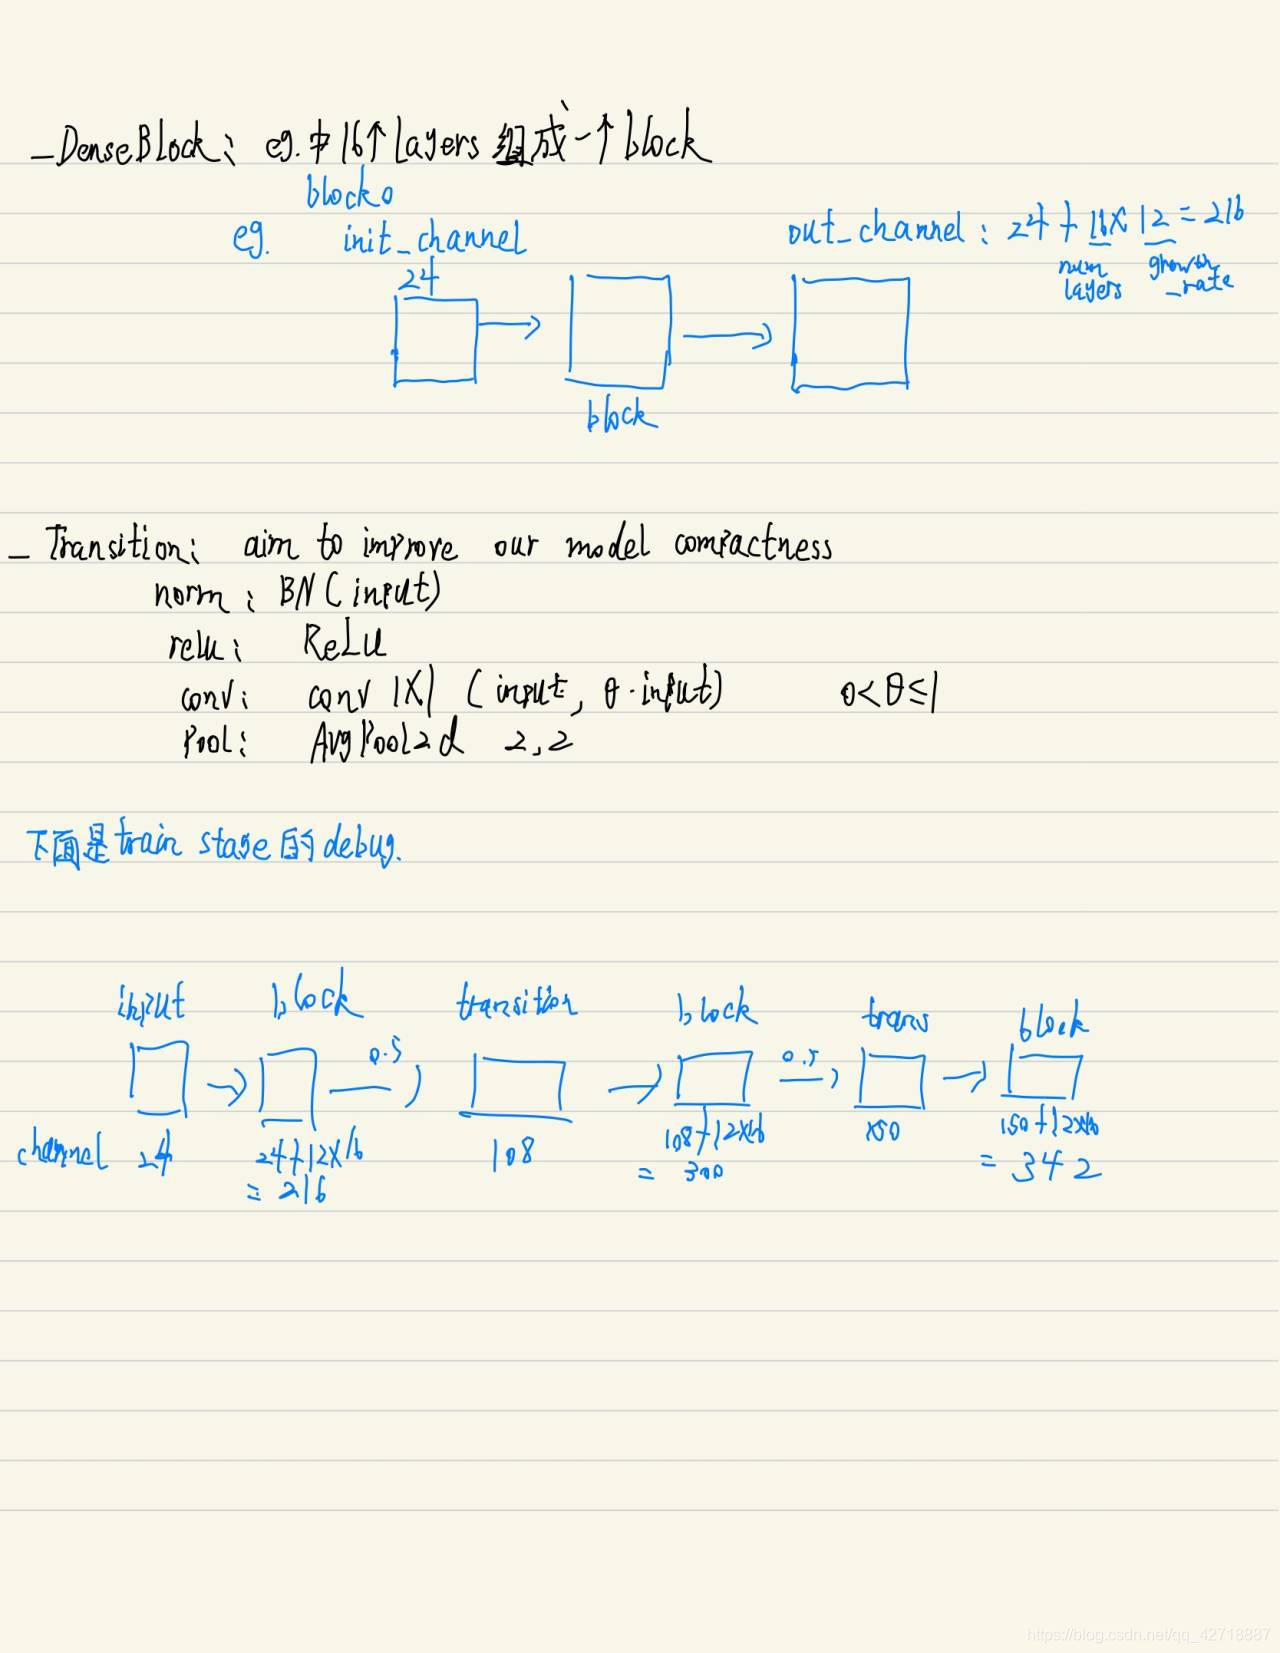 _DenseBlock: eg.中16个layers 组成一个block
block0
eg. init_channel
24
out_channel: 24+16×12=216
num layers
growth_rate
block
_Transition: aim to improve our model compactness
norm: BN(input)
relu: ReLU
conv: conv 1X1 (input, θ·input) 0<θ≤1
Pool: AvgPool2d 2,2
下面是train stage的debug.
input block transition block trans block
0.5 0.5
channel 24 24+12×16 108 108+12×16 150 150+12×16
=216 = 300 = 342
https://blog.csdn.net/qq_42718887